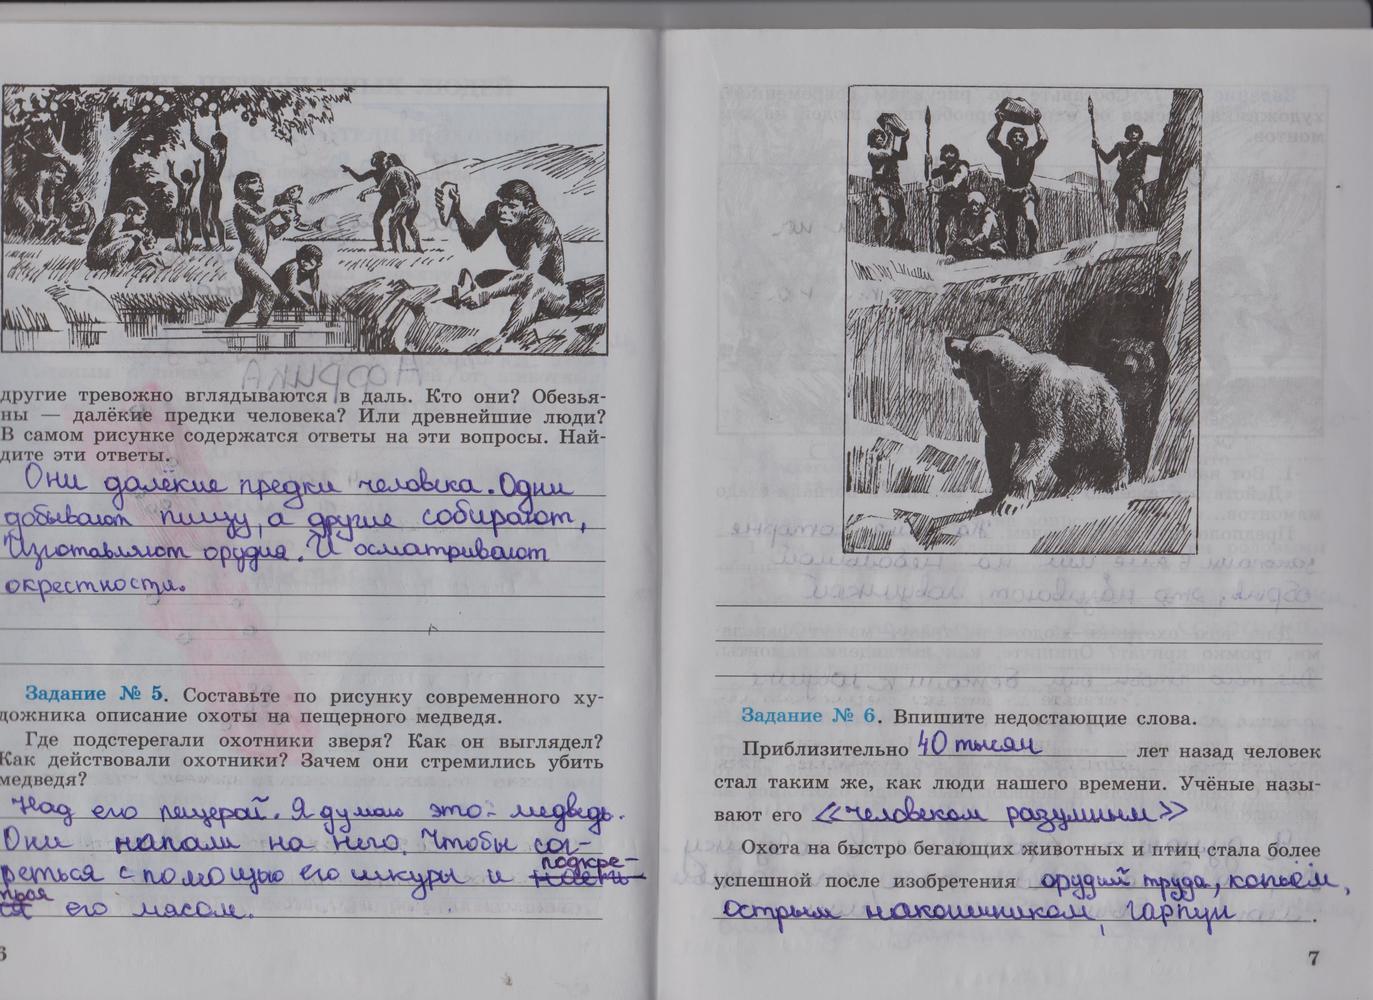 другие тревожно вглядываются в даль. Кто они? Обезья-
ны — далёкие предки человека? Или древнейшие люди?
В самом рисунке содержатся ответы на эти вопросы. Най-
дите эти ответы.
Они далёкие предки человека. Одни
добывают пищу, а другие собирают,
Изготавляют орудия. И осматривают
окрестности.
Задание № 5. Составьте по рисунку современного ху-
дожника описание охоты на пещерного медведя.
Где подстерегали охотники зверя? Как он выглядел?
Как действовали охотники? Зачем они стремились убить
медведя?
Над его пещерай. Я думаю это - медведь.
Они напали на него. Чтобы сог-
реться с помощью его шкуры и подкре-
пься его мясом.
6
Задание № 6. Впишите недостающие слова.
Приблизительно 40 тысяч лет назад человек
стал таким же, как люди нашего времени. Учёные назы-
вают его «человеком разумным»
Охота на быстро бегающих животных и птиц стала более
успешной после изобретения орудий труда, копьём,
острым наконшником, гарпун .
7